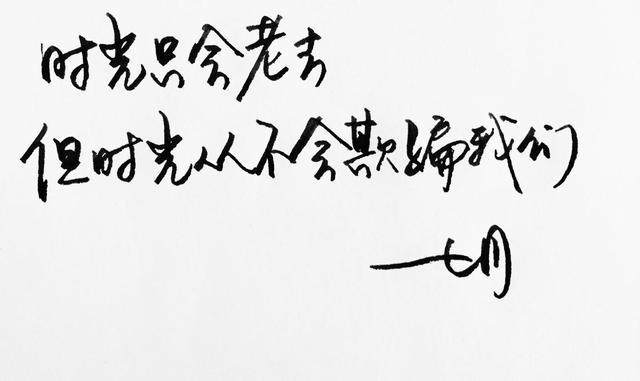 时光只会老去
但时光从不会欺骗我们
—七月